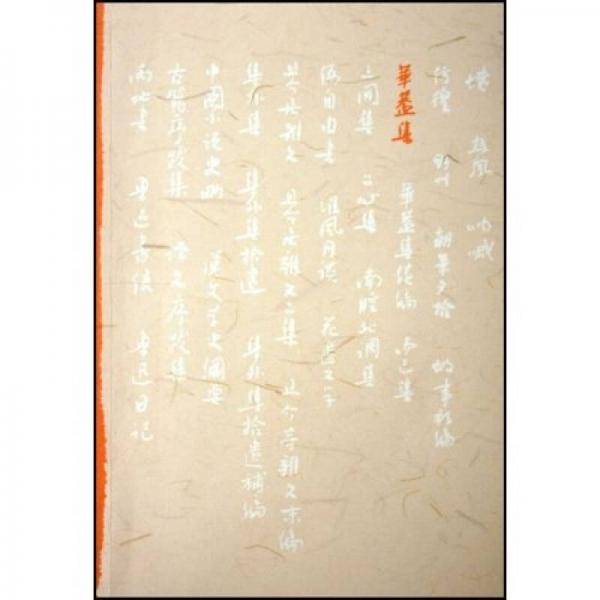 墳 熱風 吶喊
彷徨 野草 朝華夕拾 故事新編
華蓋集 華蓋集續編 而已集
三閒集 二心集 南腔北調集
偽自由書 准風月談 花邊文學
且介亭雜文 且介亭雜文二集 且介亭雜文末編
集外集 集外集拾遺 集外集拾遺補編
中國小說史略 漢文學史綱要
古籍序跋集 譯文序跋集
兩地書 魯迅書信 魯迅日記